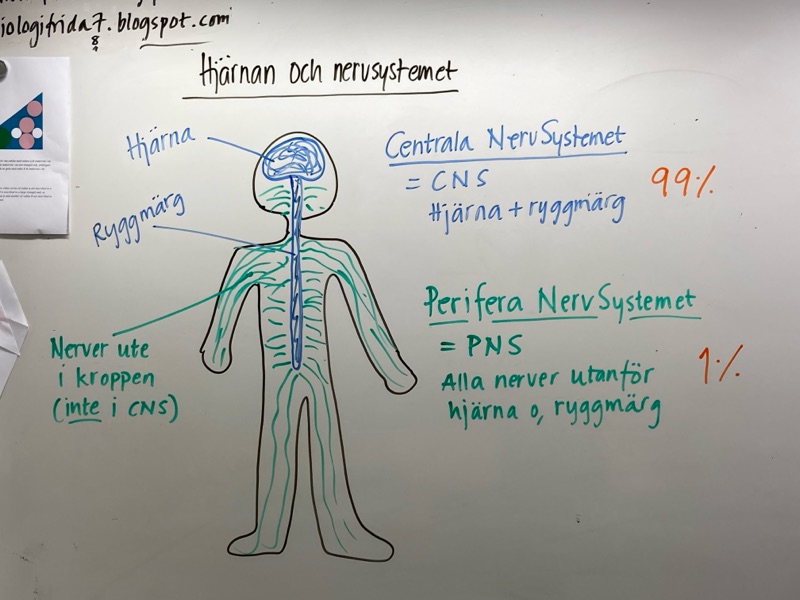 iologifrida7.blogspot.com
8
9
Hjärnan och nervsystemet
Hjärna
Ryggmärg
Nerver ute
i kroppen
(inte i CNS)
Centrala NervSystemet
= CNS
Hjärna + ryggmärg
99%
Perifera NervSystemet
= PNS
Alla nerver utanför
hjärna o, ryggmärg
1%